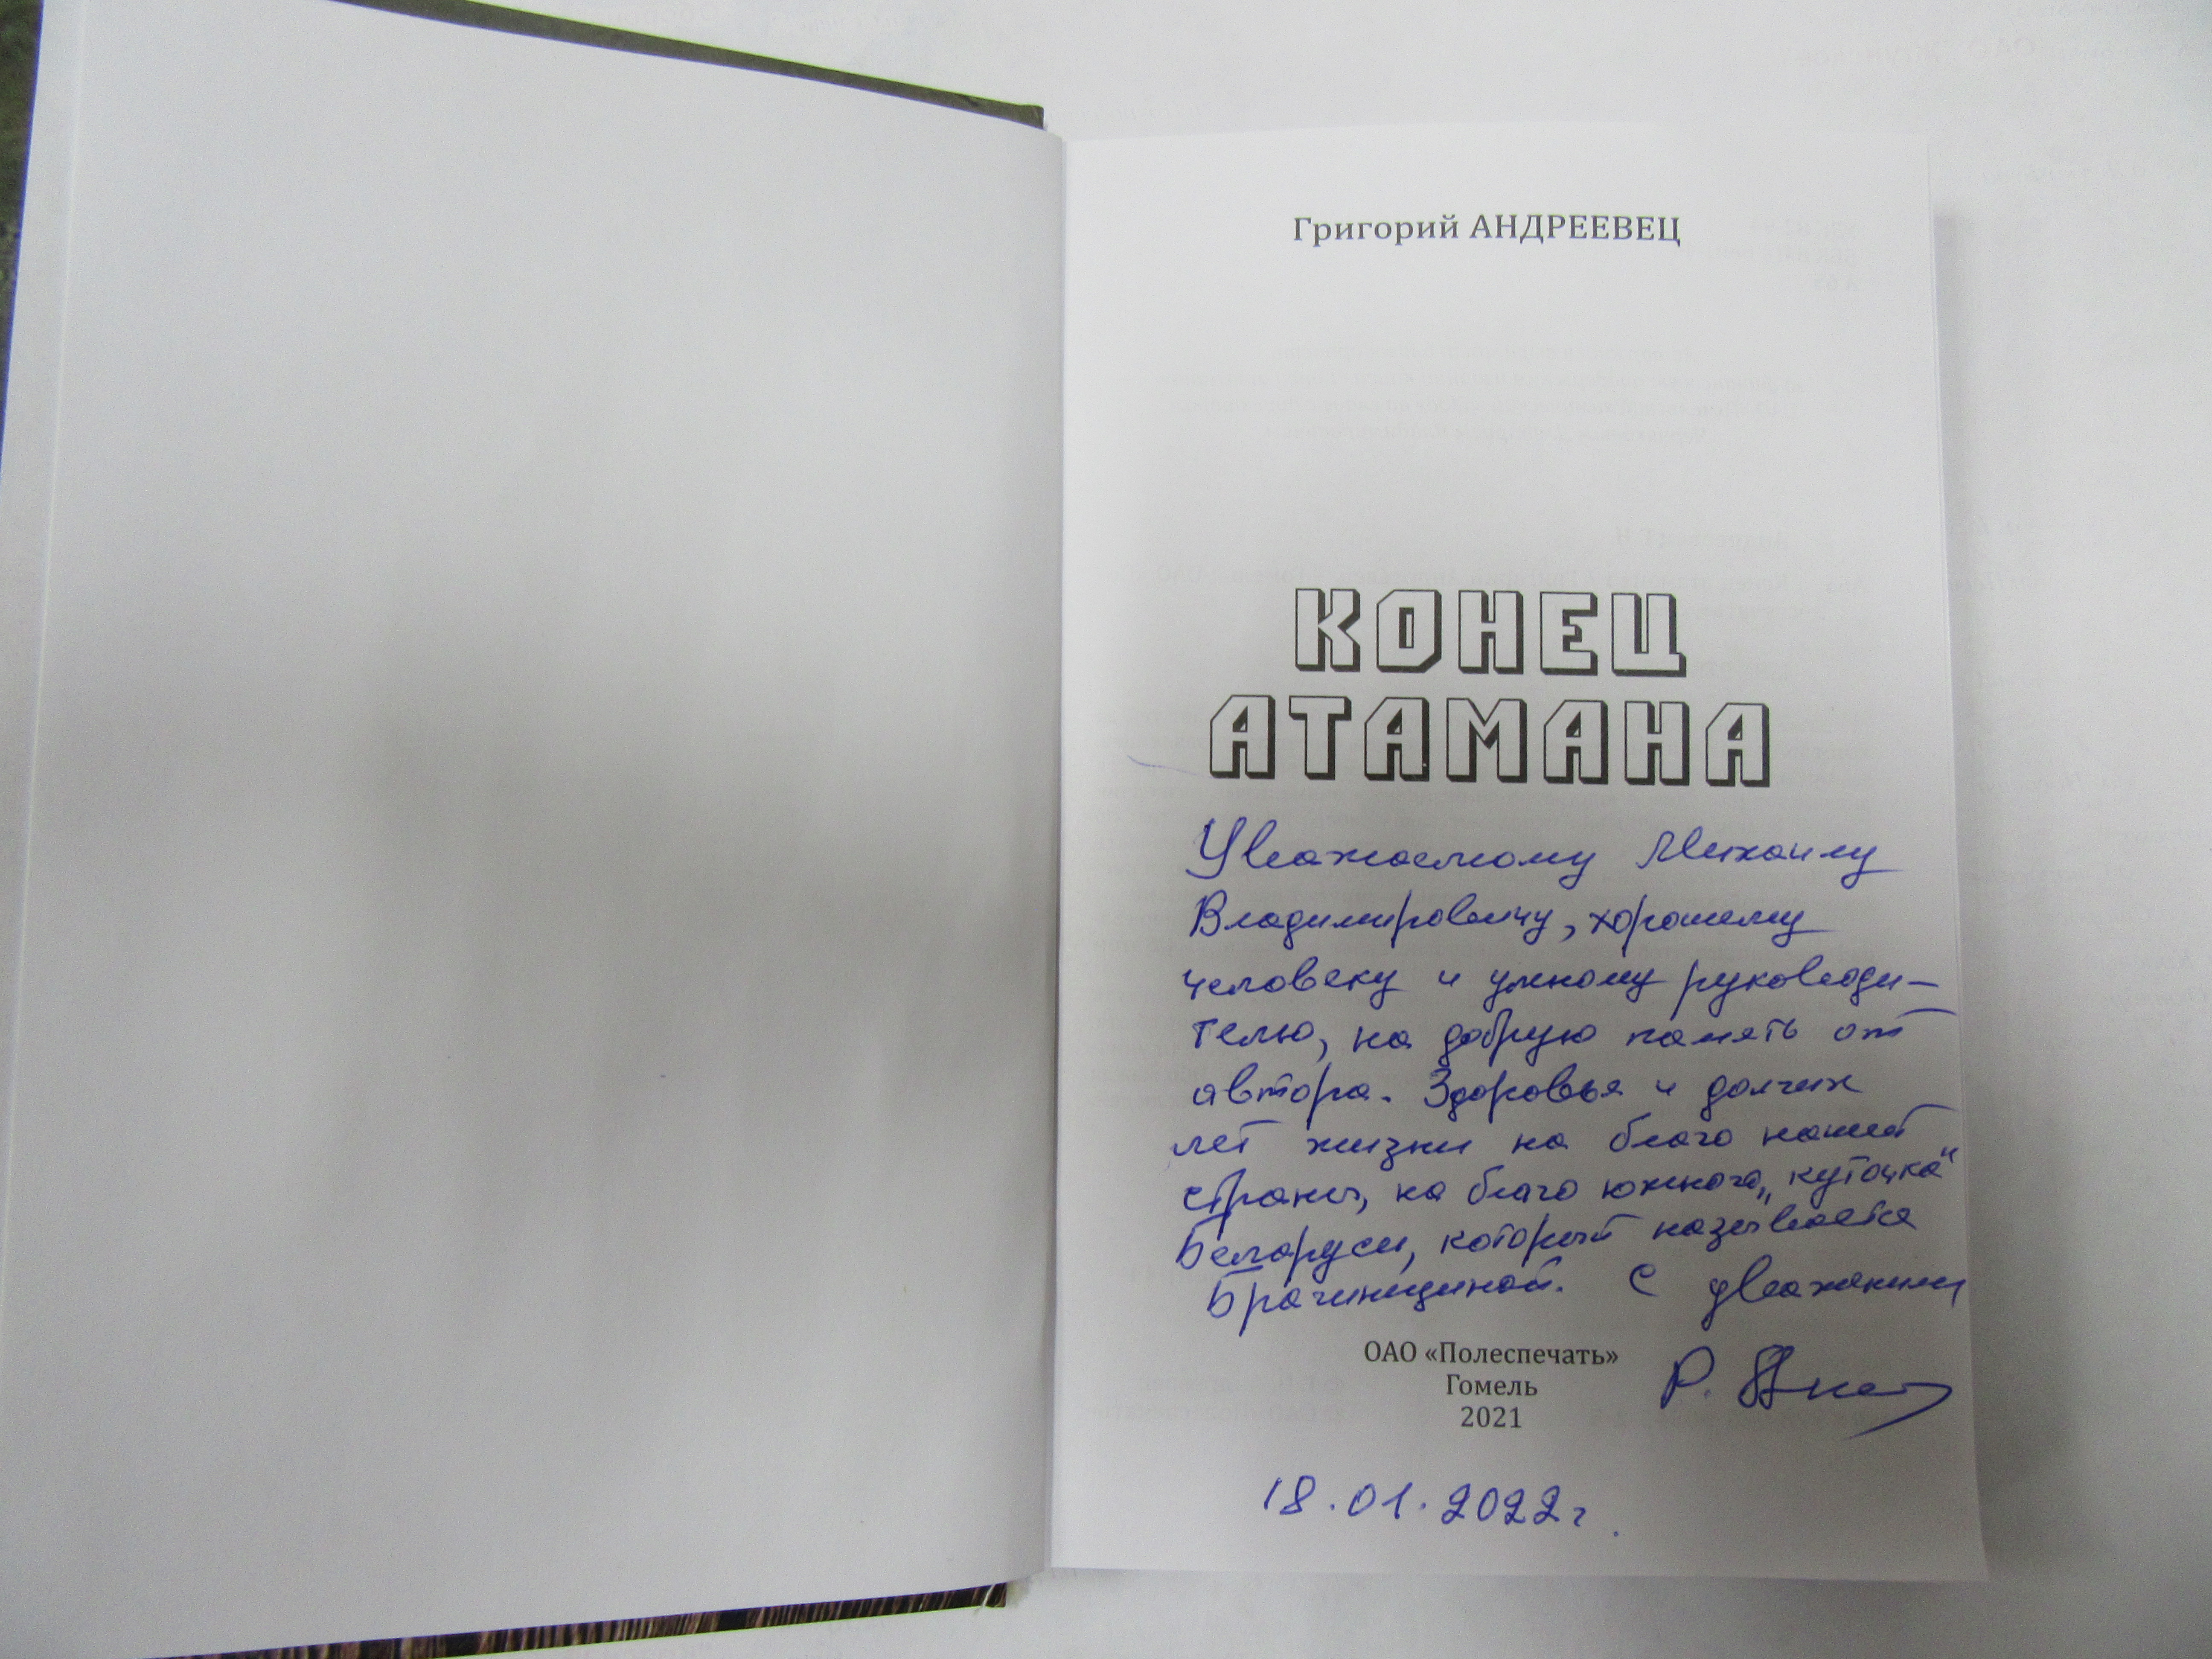 Григорий АНДРЕЕВЕЦ
КОНЕЦ
АТАМАНА
Уважаемому Михаилу
Владимировичу, хорошему
человеку и умному руководи-
телю, на добрую память от
автора. Здоровья и долгих
лет жизни на благо нашей
страны, на благо южного „куточка“
Беларуси, который называется
Брагинщиной. С уважением
ОАО «Полеспечать»
Гомель
2021
18.01.2022г.